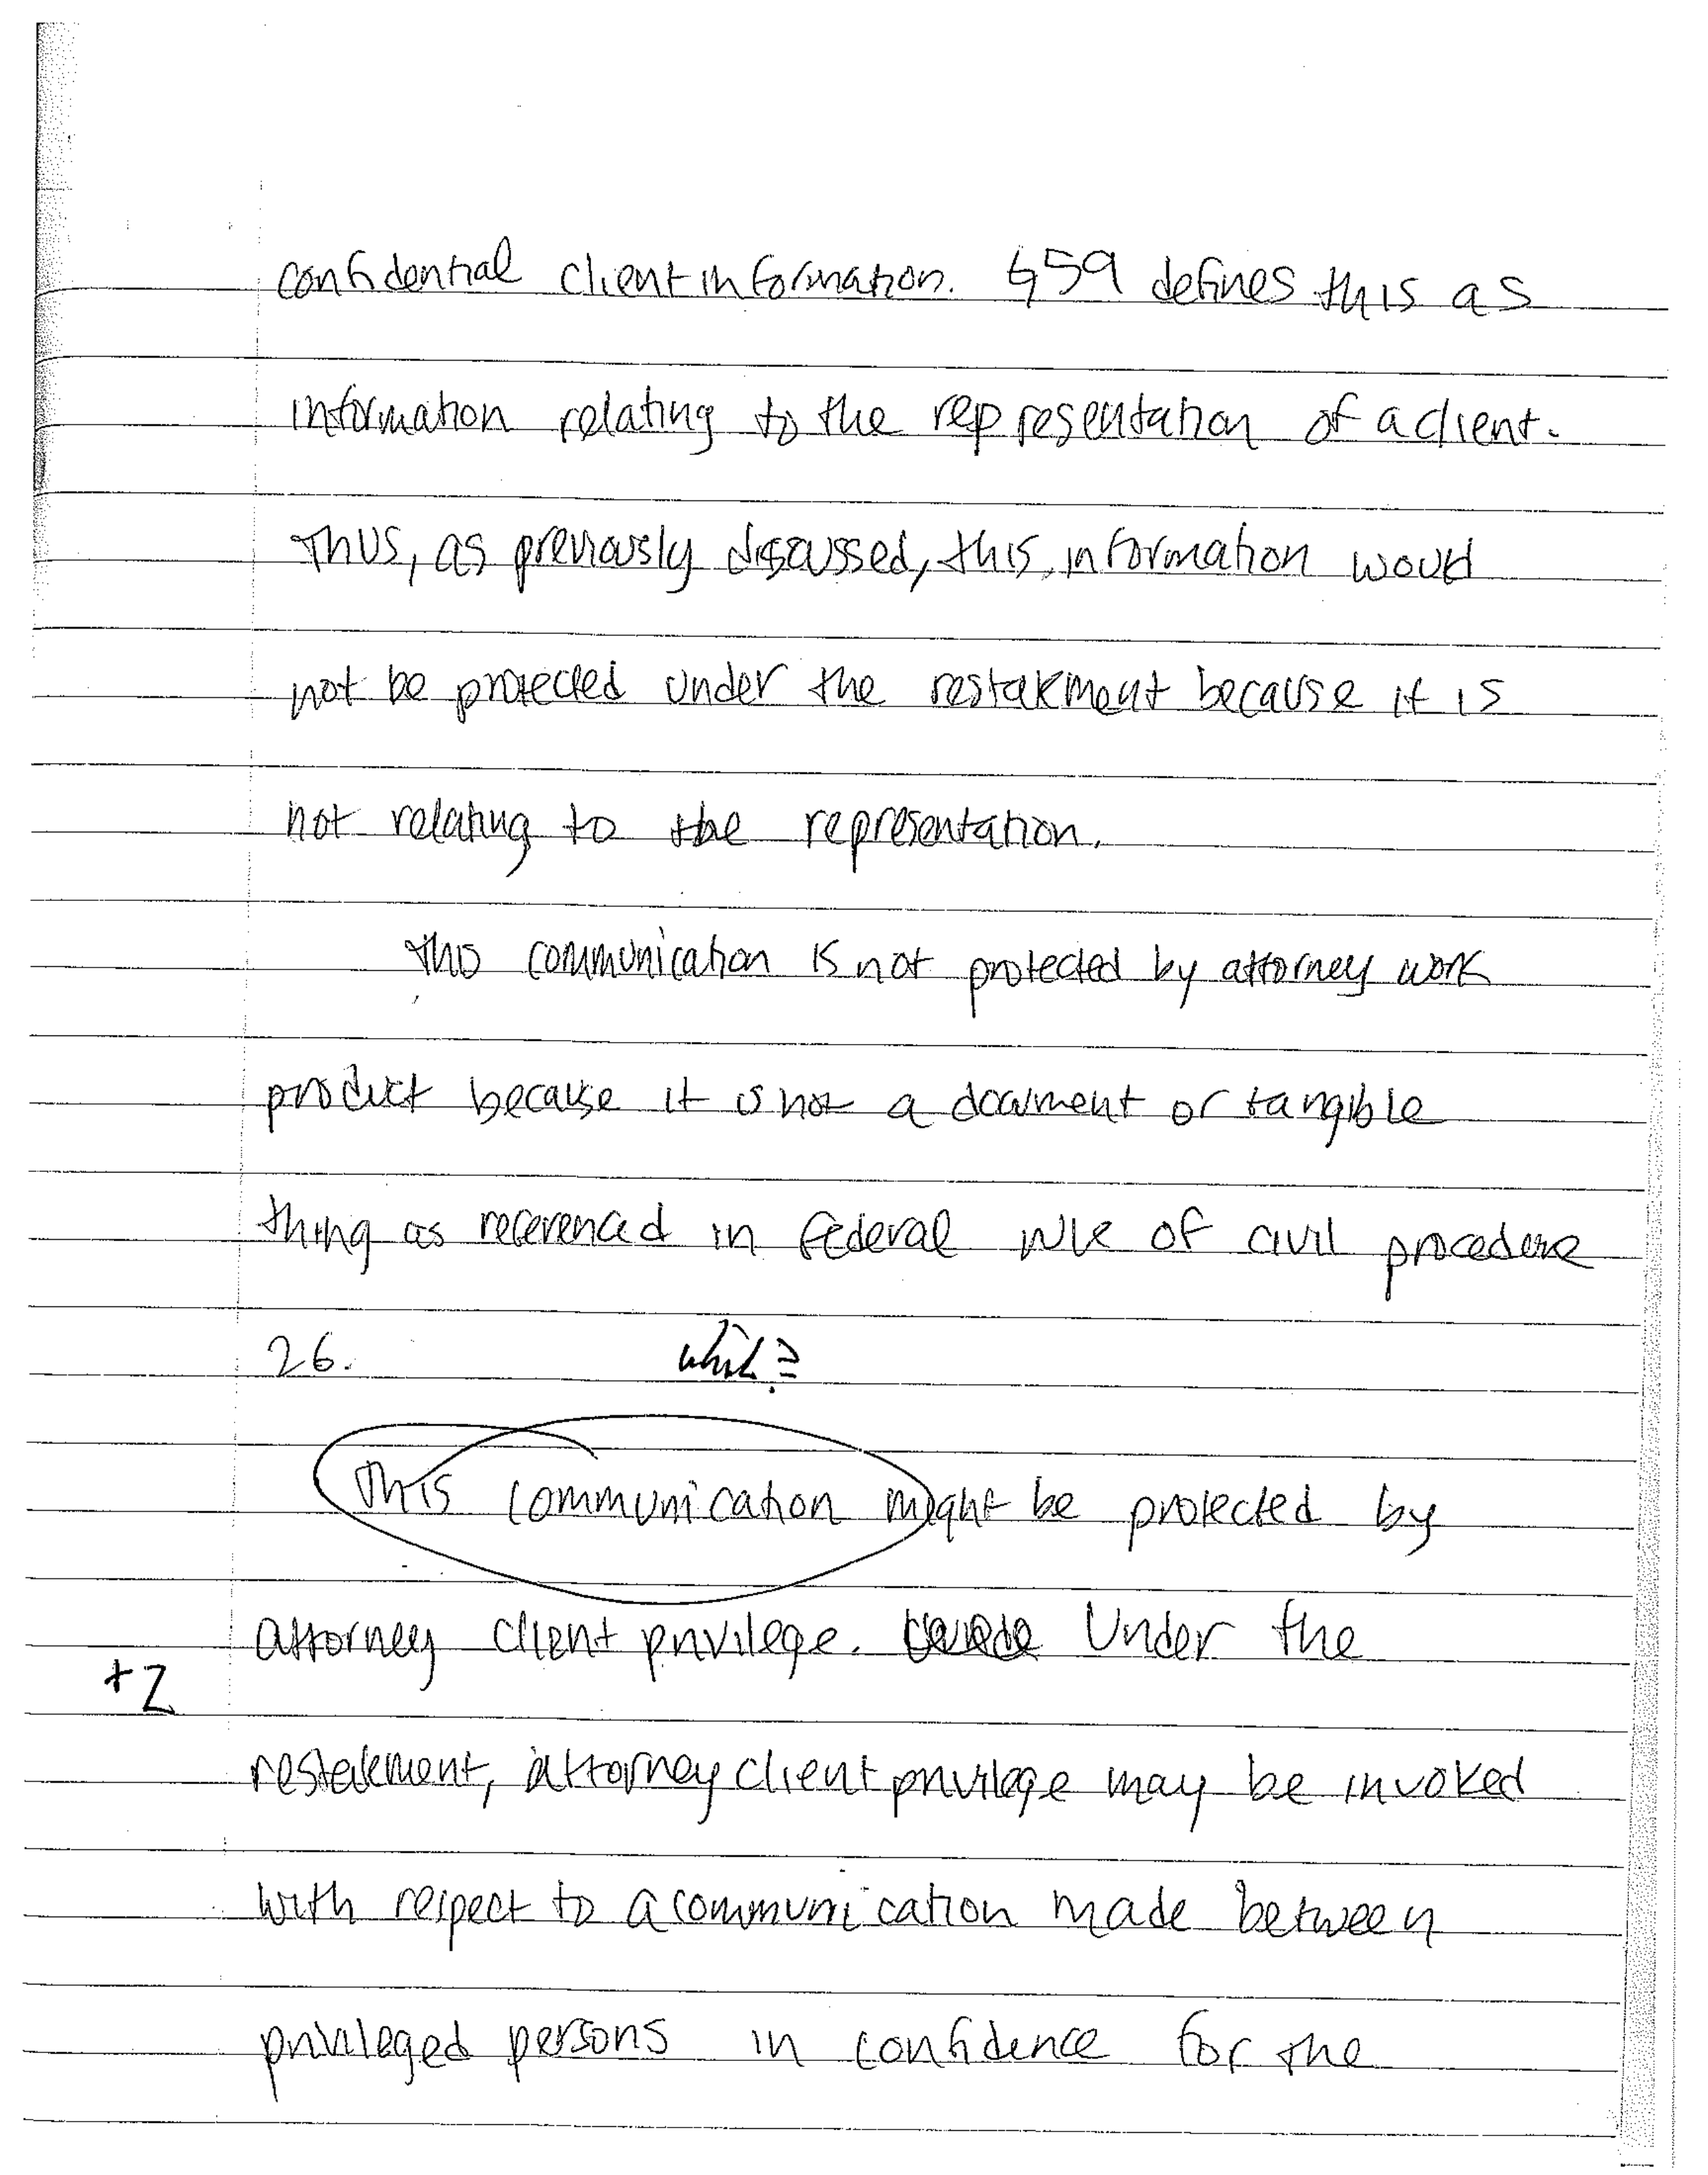 confidential client information. §59 defines this as
information relating to the representation of a client.
Thus, as previously discussed, this information would
not be protected under the restatement because it is
not relating to the representation.
This communication is not protected by attorney work
product because it is not a document or tangible
thing as referenced in federal rule of civil procedure
26.
which?
This communication might be protected by
attorney client privilege. Under the
+2
restatement, attorney client privilege may be invoked
with respect to a communication made between
privileged persons in confidence for the